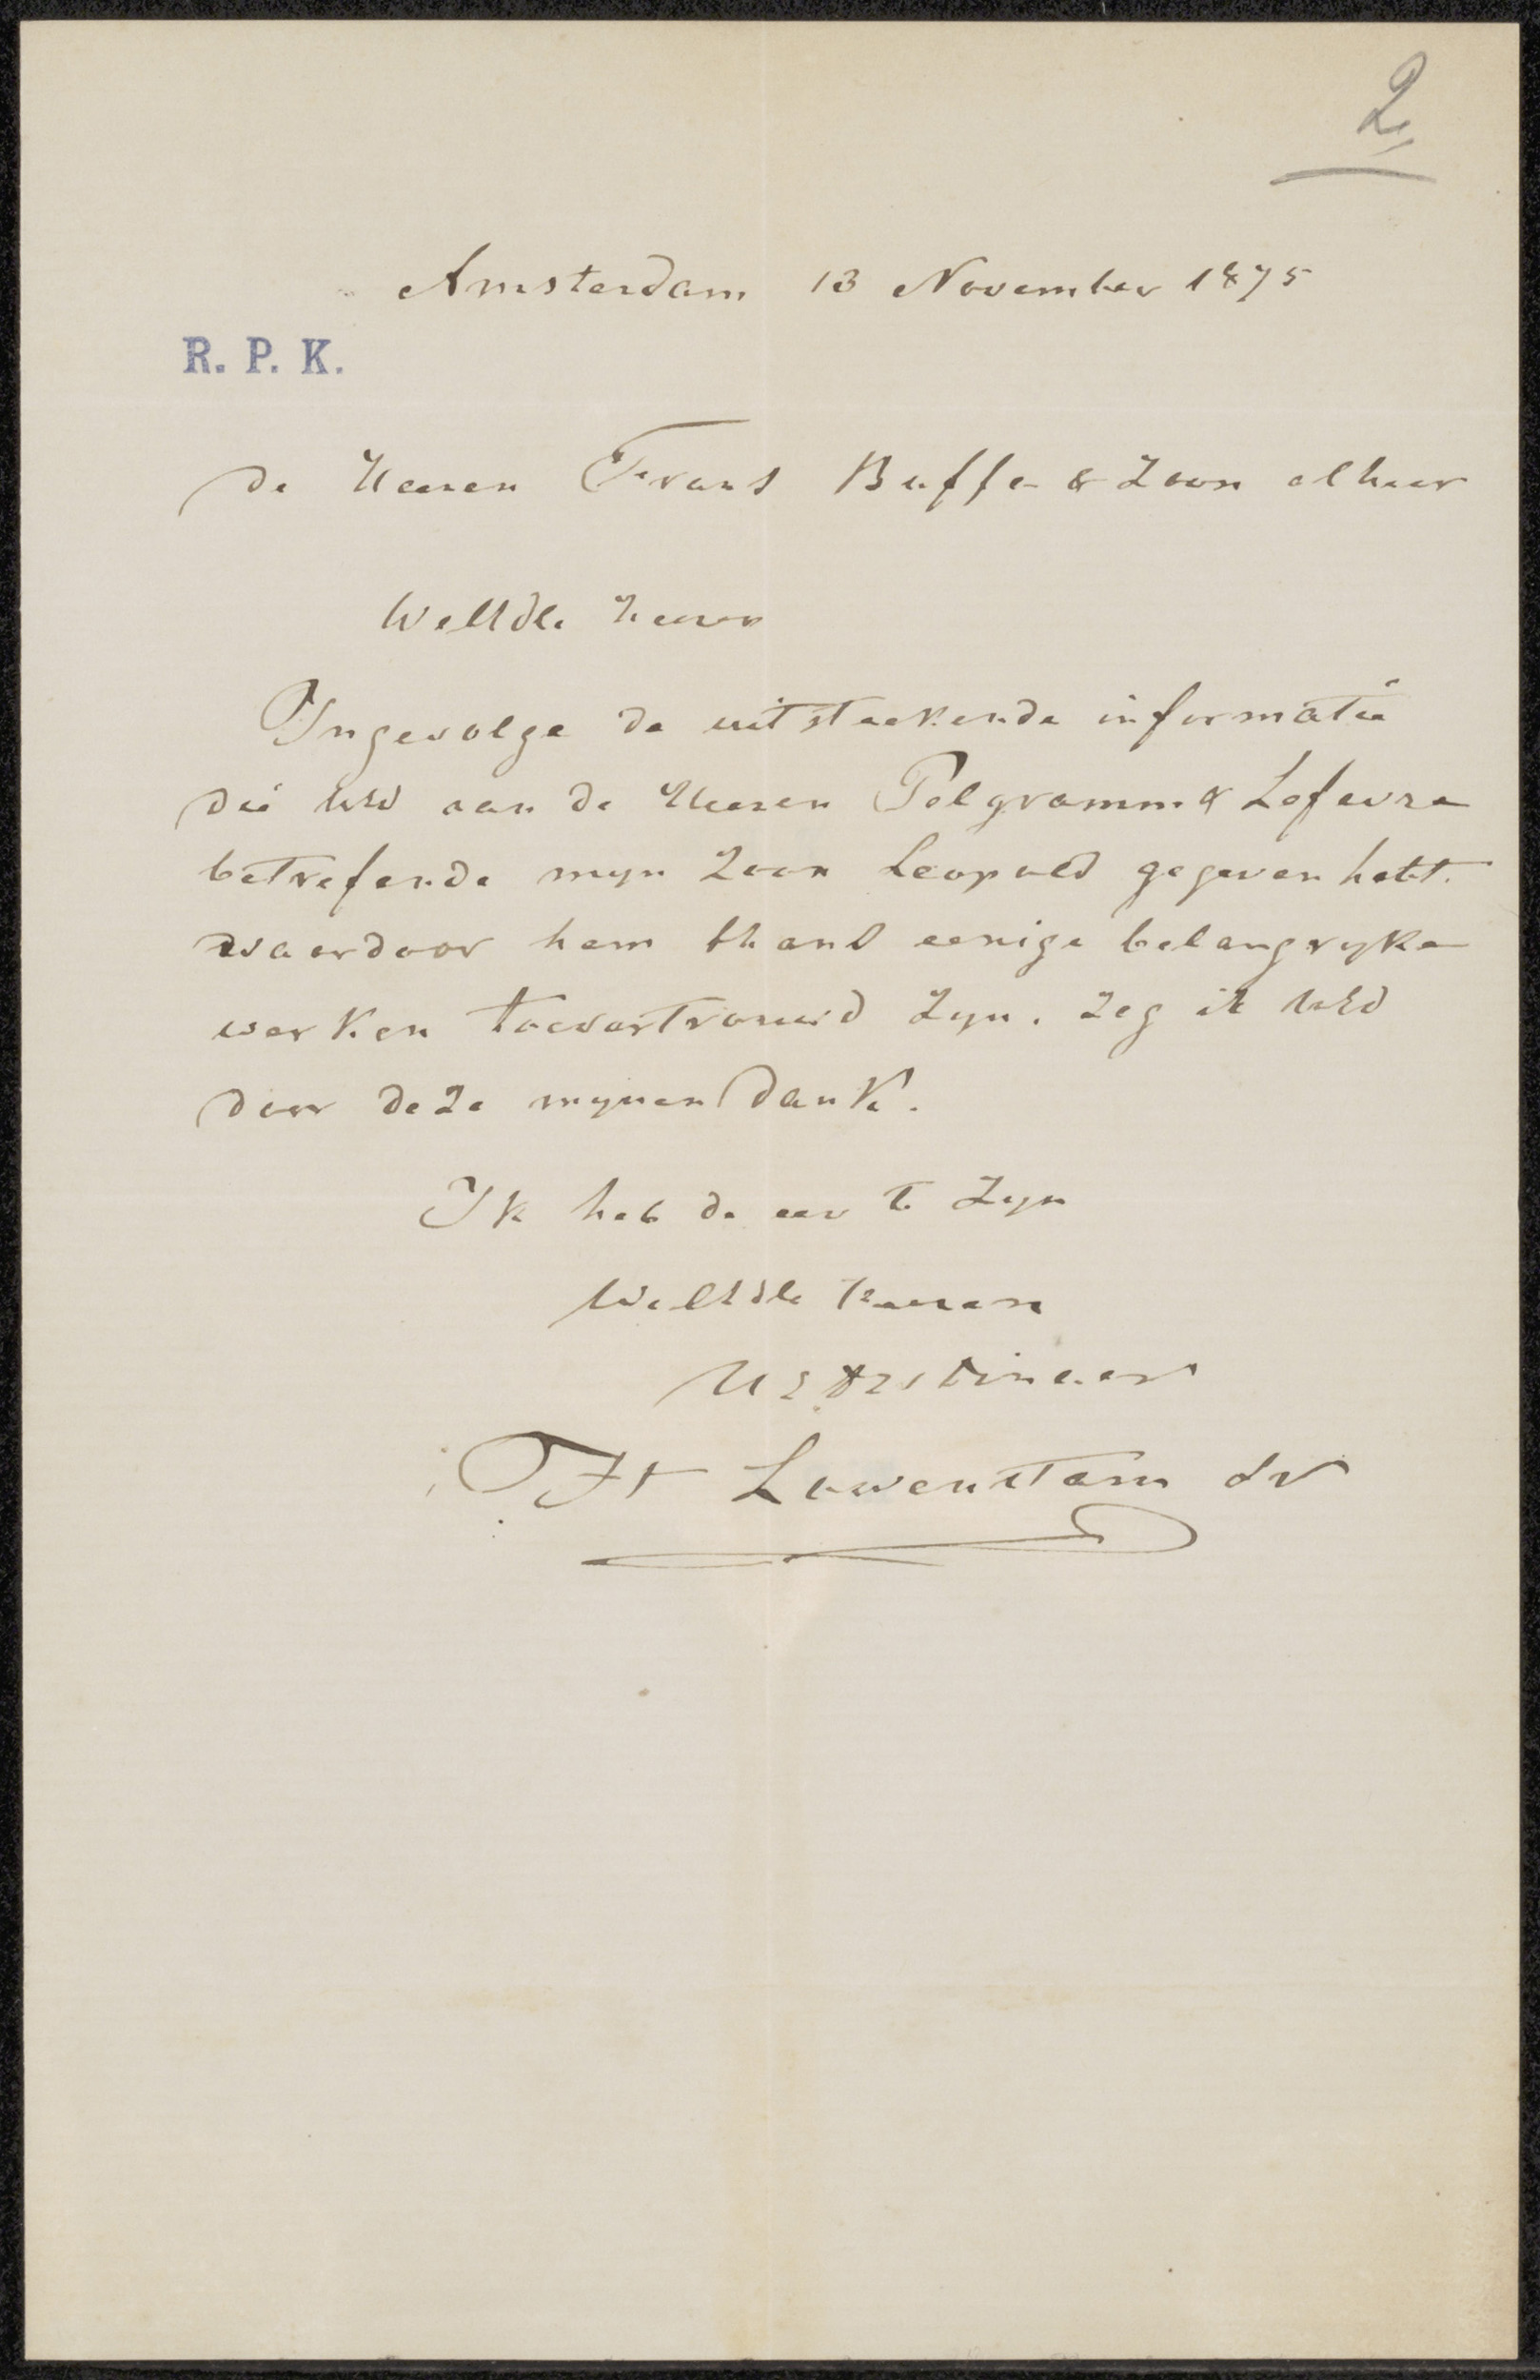 2
Amsterdam 13 November 1875
R. P. K.
de Heeren Frans Buffa & Zoon alhier
WelEdle Heeren
Ingevolge de uitsteekende informatie
die UEd aan de Heeren Pelgramm & Lefevre
betrefende myn Zoon Leopold gegeven hebt.
waardoor hem thans eenige belangryke
werken toevertrouwd zyn. zeg ik UEd
door deze mynen dank.
Ik heb de eer te zyn
WelEdle Heeren
UEd Dinaar
Lowenstam Sr